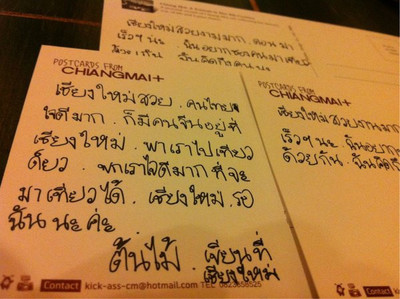 เชียงใหม่สวยงามมาก. ตอนมา
เร็วๆนะ. ฉันอยาก
POSTCARDS FROM
CHIANGMAI+
เชียงใหม่สวย. คนไทย
ใจดีมาก. ก็มีคนจีนอยู่ที่
เชียงใหม่. พาเราไปเที่ยว
ด้วย. พาเราใจดีมากที่จะ
มาเที่ยวได้. เชียงใหม่ รอ
ฉันนะค่ะ
ต้นไม้. เขียนที่
เชียงใหม่
Contact kick-ass-cm@hotmail.com TEL 0823858525
POSTCARDS FROM
CHIANGMAI+
เชียงใหม่สวยงามมาก
เร็วๆนะ. ฉันอยาก
ด้วยกัน. ฉันคิดถึง
Contact